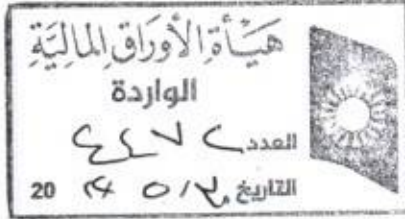 هيئة الأوراق المالية
الواردة
العدد ٤٤٧٢
التاريخ 20